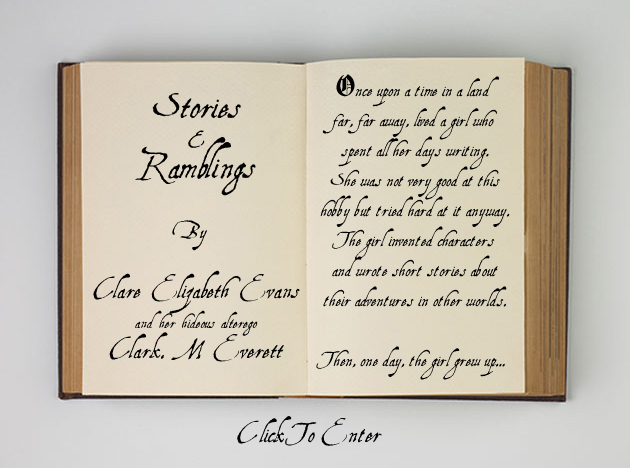 Stories
&
Ramblings
By
Clare Elizabeth Evans
and her hideous alterego
Clark. M Everett
Once upon a time in a land
far, far away, lived a girl who
spent all her days writing.
She was not very good at this
hobby but tried hard at it anyway.
The girl invented characters
and wrote short stories about
their adventures in other worlds.
Then, one day, the girl grew up...
Click To Enter